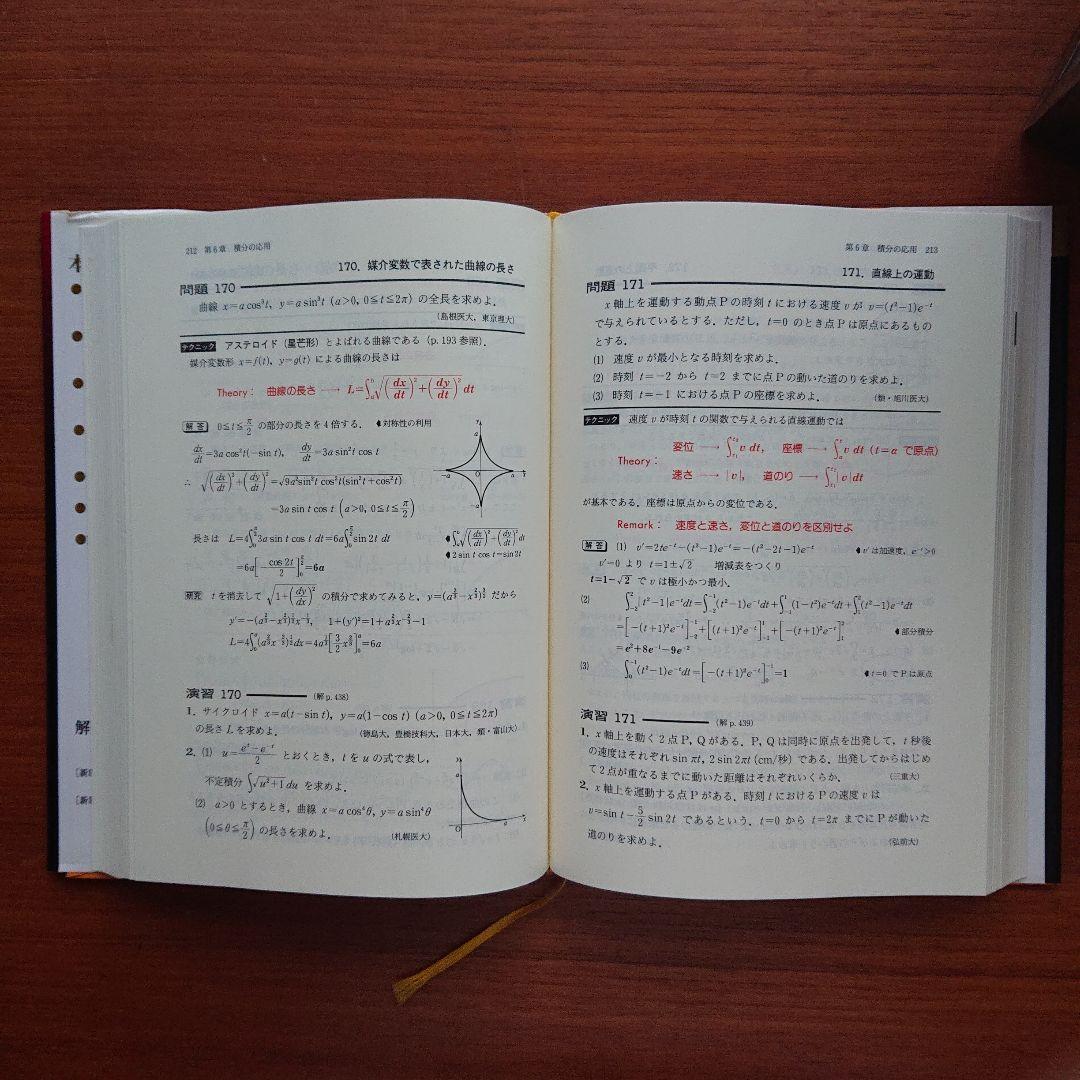 212 第6章 積分の応用
170. 媒介変数で表された曲線の長さ
問題 170
曲線 x=a cos³t, y=a sin³t (a>0, 0≦t≦2π) の全長を求めよ.
(島根医大, 東京理大)
テクニック アステロイド (星芒形) とよばれる曲線である (p. 193 参照).
媒介変数形 x=f(t), y=g(t) による曲線の長さは
Theory: 曲線の長さ → L=∫ₐᵇ√((dx/dt)²+(dy/dt)²) dt
解答 0≦t≦π/2 の部分の長さを4倍する. ◖対称性の利用
dx/dt=3a cos²t(-sin t), dy/dt=3a sin²t cos t
∴ √((dx/dt)²+(dy/dt)²)=√(9a²sin²t cos²t(sin²t+cos²t))
=3a sin t cos t (a>0, 0≦t≦π/2)
長さは L=4∫₀^(π/2) 3a sin t cos t dt=6a∫₀^(π/2) sin 2t dt ◖∫ₐᵇ√((dx/dt)²+(dy/dt)²) dt
◖2 sin t cos t=sin 2t
=6a[-cos 2t/2]₀^(π/2)=6a
研究 t を消去して √(1+(dy/dx)²) の積分で求めてみると, y=(a^(2/3)-x^(2/3))^(3/2) だから
y'=-(a^(2/3)-x^(2/3))^(1/2)x^(-1/3), 1+(y')²=1+a^(2/3)x^(-2/3)-1
L=4∫₀ᵃ(a^(2/3)x^(-2/3))^(1/2)dx=4a^(1/3)[3/2 x^(2/3)]₀ᵃ=6a
演習 170 (解 p. 438)
1. サイクロイド x=a(t-sin t), y=a(1-cos t) (a>0, 0≦t≦2π)
の長さ L を求めよ. (徳島大, 豊橋技科大, 日本大, 類・富山大)
2. (1) u=(eᵗ-e⁻ᵗ)/2 とおくとき, t を u の式で表し,
不定積分 ∫√(u²+1) du を求めよ.
(2) a>0 とするとき, 曲線 x=a cos⁴θ, y=a sin⁴θ
(0≦θ≦π/2) の長さを求めよ. (札幌医大)
第6章 積分の応用 213
171. 直線上の運動
問題 171
x 軸上を運動する動点 P の時刻 t における速度 v が v=(t²-1)e⁻ᵗ
で与えられているとする. ただし, t=0 のとき点 P は原点にあるもの
とする.
(1) 速度 v が最小となる時刻を求めよ.
(2) 時刻 t=-2 から t=2 までに点 P の動いた道のりを求めよ.
(3) 時刻 t=-1 における点 P の座標を求めよ. (類・旭川医大)
テクニック 速度 v が時刻 t の関数で与えられる直線運動では
変位 → ∫v dt, 座標 → ∫v dt (t=a で原点)
Theory:
速さ → |v|, 道のり → ∫|v|dt
が基本である. 座標は原点からの変位である.
Remark: 速度と速さ, 変位と道のりを区別せよ
解答 (1) v'=2te⁻ᵗ-(t²-1)e⁻ᵗ=-(t²-2t-1)e⁻ᵗ ◖v' は加速度, e⁻ᵗ>0
v'=0 より t=1±√2 増減表をつくり
t=1-√2 で v は極小かつ最小.
(2) ∫₋₂²|t²-1|e⁻ᵗdt=∫₋₂⁻¹(t²-1)e⁻ᵗdt+∫₋₁¹(1-t²)e⁻ᵗdt+∫₁²(t²-1)e⁻ᵗdt
=[-(t+1)²e⁻ᵗ]₋₂⁻¹+[(t+1)²e⁻ᵗ]₋₁¹+[-(t+1)²e⁻ᵗ]₁² ◖部分積分
=e²+8e⁻¹-9e⁻²
(3) ∫₀⁻¹(t²-1)e⁻ᵗdt=[-(t+1)²e⁻ᵗ]₀⁻¹=1 ◖t=0 で P は原点
演習 171 (解 p. 439)
1. x 軸上を動く2点 P, Q がある. P, Q は同時に原点を出発して, t 秒後
の速度はそれぞれ sin πt, 2 sin 2πt (cm/秒) である. 出発してからはじめ
て2点が重なるまでに動いた距離はそれぞれいくらか. (三重大)
2. x 軸上を運動する点 P がある. 時刻 t における P の速度 v は
v=sin t-5/2 sin 2t であるという. t=0 から t=2π までに P が動いた
道のりを求めよ. (弘前大)
解